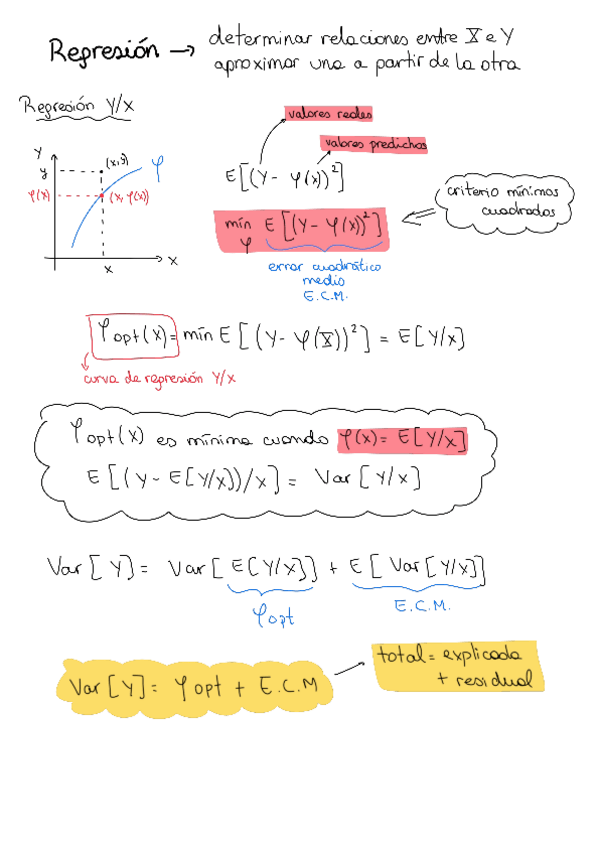 Regresión → determinar relaciones entre X e Y
aproximar una a partir de la otra
Regresión Y/X
valores reales
valores predichos
E[(Y - φ(x))²]
criterio mínimos
cuadrados
mín E[(Y - φ(x))²]
φ
error cuadrático
medio
E.C.M.
Y
y
(x,y)
φ
φ(x)
(x, φ(x))
x
X
φopt(x) = mín E[(Y - φ(X))²] = E[Y/x]
curva de regresión Y/X
φopt(x) es mínima cuando φ(x) = E[Y/x]
E[(Y - E[Y/x])/x] = Var[Y/x]
Var[Y] = Var[E[Y/x]] + E[Var[Y/x]]
φopt
E.C.M.
Var[Y] = φopt + E.C.M
total = explicada
+ residual